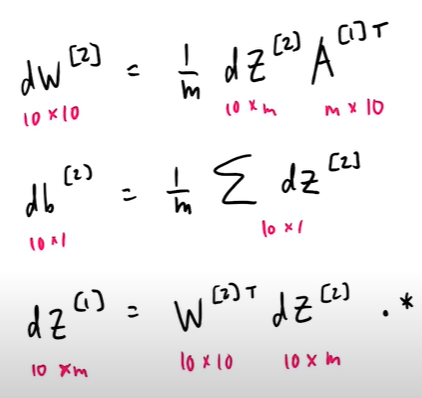 dW[2] = 1/m dZ[2] A[1]T
10×10 10×m m×10
db[2] = 1/m Σ dZ[2]
10×1 10×1
dZ[1] = W[2]T dZ[2] .*
10×m 10×10 10×m